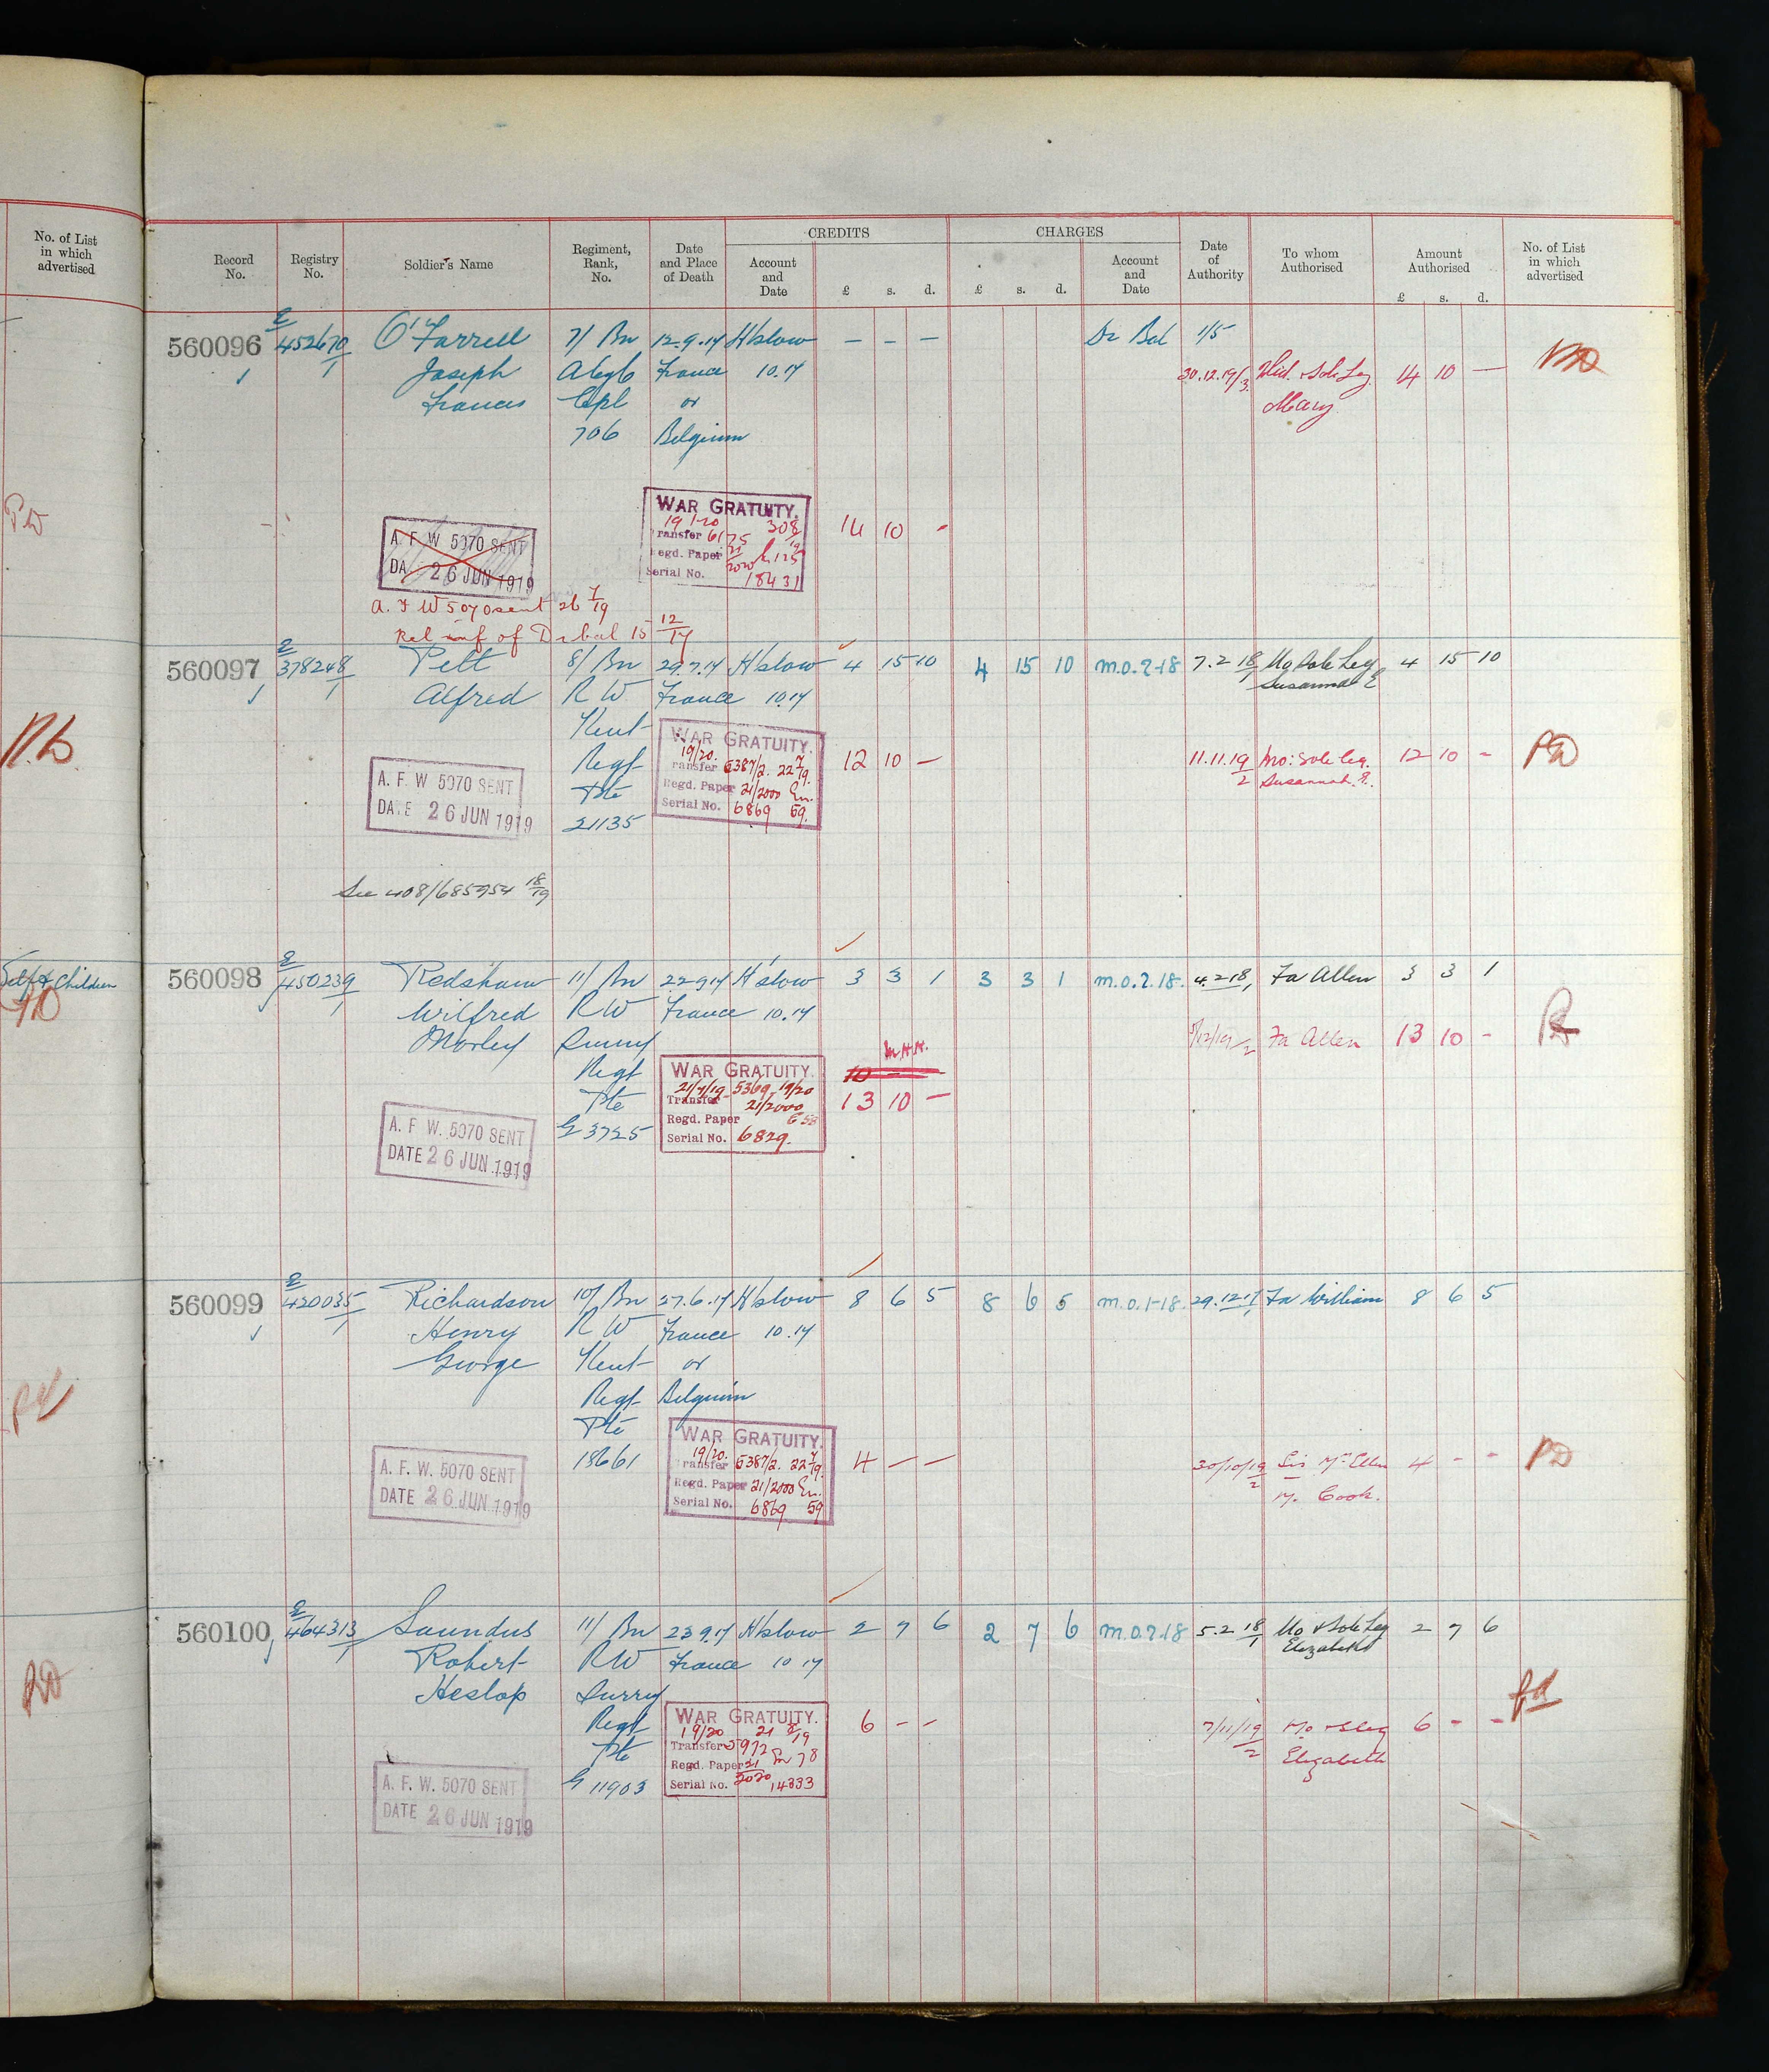 No. of List
in which
advertised
Self & Children
Record
No.
Registry
No.
Soldier's Name
Regiment,
Rank,
No.
Date
and Place
of Death
CREDITS
Account
and
Date
£ s. d.
CHARGES
£ s. d.
Account
and
Date
Date
of
Authority
To whom
Authorised
Amount
Authorised
£ s. d.
No. of List
in which
advertised
560096 E 452670/1 O'Farrell 7/ Bn 12.9.17 H'slow — — — Dr Bal 1/5
Joseph France 10.17 30.12.19/3 Wid. & Sole Leg 14 10 —
Francis Cpl or Mary
706 Belgium
WAR GRATUITY.
19/20 308/19
Transfer 6175
Regd. Paper 21/2020 E 125
Serial No. 18431
14 10 -
A. F. W 5070 SENT
DATE 26 JUN 1919
A. F W 5070 sent 26 7/19
Rel inf of Dr bal 15 12/17
560097 E 378248/1 Pett 8/ Bn 29.7.17 H'slow 4 15 10 4 15 10 M.O. 2-18 7.2.18/1 Mo Sole Leg 4 15 10
Susannah E
Alfred R W France 10.17
Kent
Regt
Pte
21135
WAR GRATUITY.
19/20.
Transfer 5387/2. 22 7/19.
Regd. Paper 21/2000 En.
Serial No. 6869 59.
12 10 — 11.11.19/2 Mo: Sole Leg. 12 10 -
Susannah. E.
A. F. W 5070 SENT
DATE 26 JUN 1919
See 408/685954 18/19
560098 E 450239/1 Redshaw 11/ Bn 22.9.17 H'slow 3 3 1 3 3 1 M.O. 2.18. 4.2.18/1 Fa Allen 3 3 1
Wilfred R W France 10.17
Morley Surrey
Regt
Pte
G 3725
WAR GRATUITY.
21/7/19 5369 19/20
Transfer 21/2000
Regd. Paper E 58
Serial No. 6829.
10 —
13 10 — Fa Allen 13 10 -
A. F. W. 5070 SENT
DATE 26 JUN 1919
560099 E 420035/1 Richardson 10/ Bn 27.6.17 H'slow 8 6 5 8 6 5 M.O. 1-18. 29.12.17/1 Fa William 8 6 5
Henry R W France 10.17
George Kent or
Regt Belgium
Pte
18661
WAR GRATUITY.
19/20.
Transfer 5387/2. 22 7/19.
Regd. Paper 21/2000 En.
Serial No. 6869 59
4 — — 30/10/19/2 Sis Mrs Ellen 4 - -
M. Cook.
A. F. W. 5070 SENT
DATE 26 JUN 1919
560100 E 464313/1 Saunders 11/ Bn 23.9.17 H'slow 2 7 6 2 7 6 M.O. 2-18 5.2.18/1 Mo & Sole Leg 2 7 6
Elizabeth
Robert R W France 10 17
Heslop Surrey
Regt
Pte
G 11903
WAR GRATUITY.
19/20 21 8/19
Transfer 5972
Regd. Paper 21/2020 En 78
Serial No. 14333
6 - - 7/11/19/2 Mo & S Leg 6 - -
Elizabeth
A. F. W. 5070 SENT
DATE 26 JUN 1919